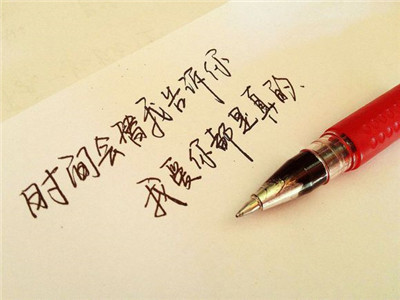 时间会替我告诉你
我爱你都是真的、